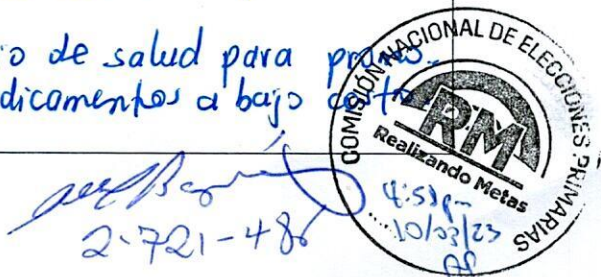 o de salud para
dicamentos a bajo costo.
COMISIÓN NACIONAL DE ELECCIONES PRIMARIAS
RM
Realizando Metas
10/03/23
2-721-48